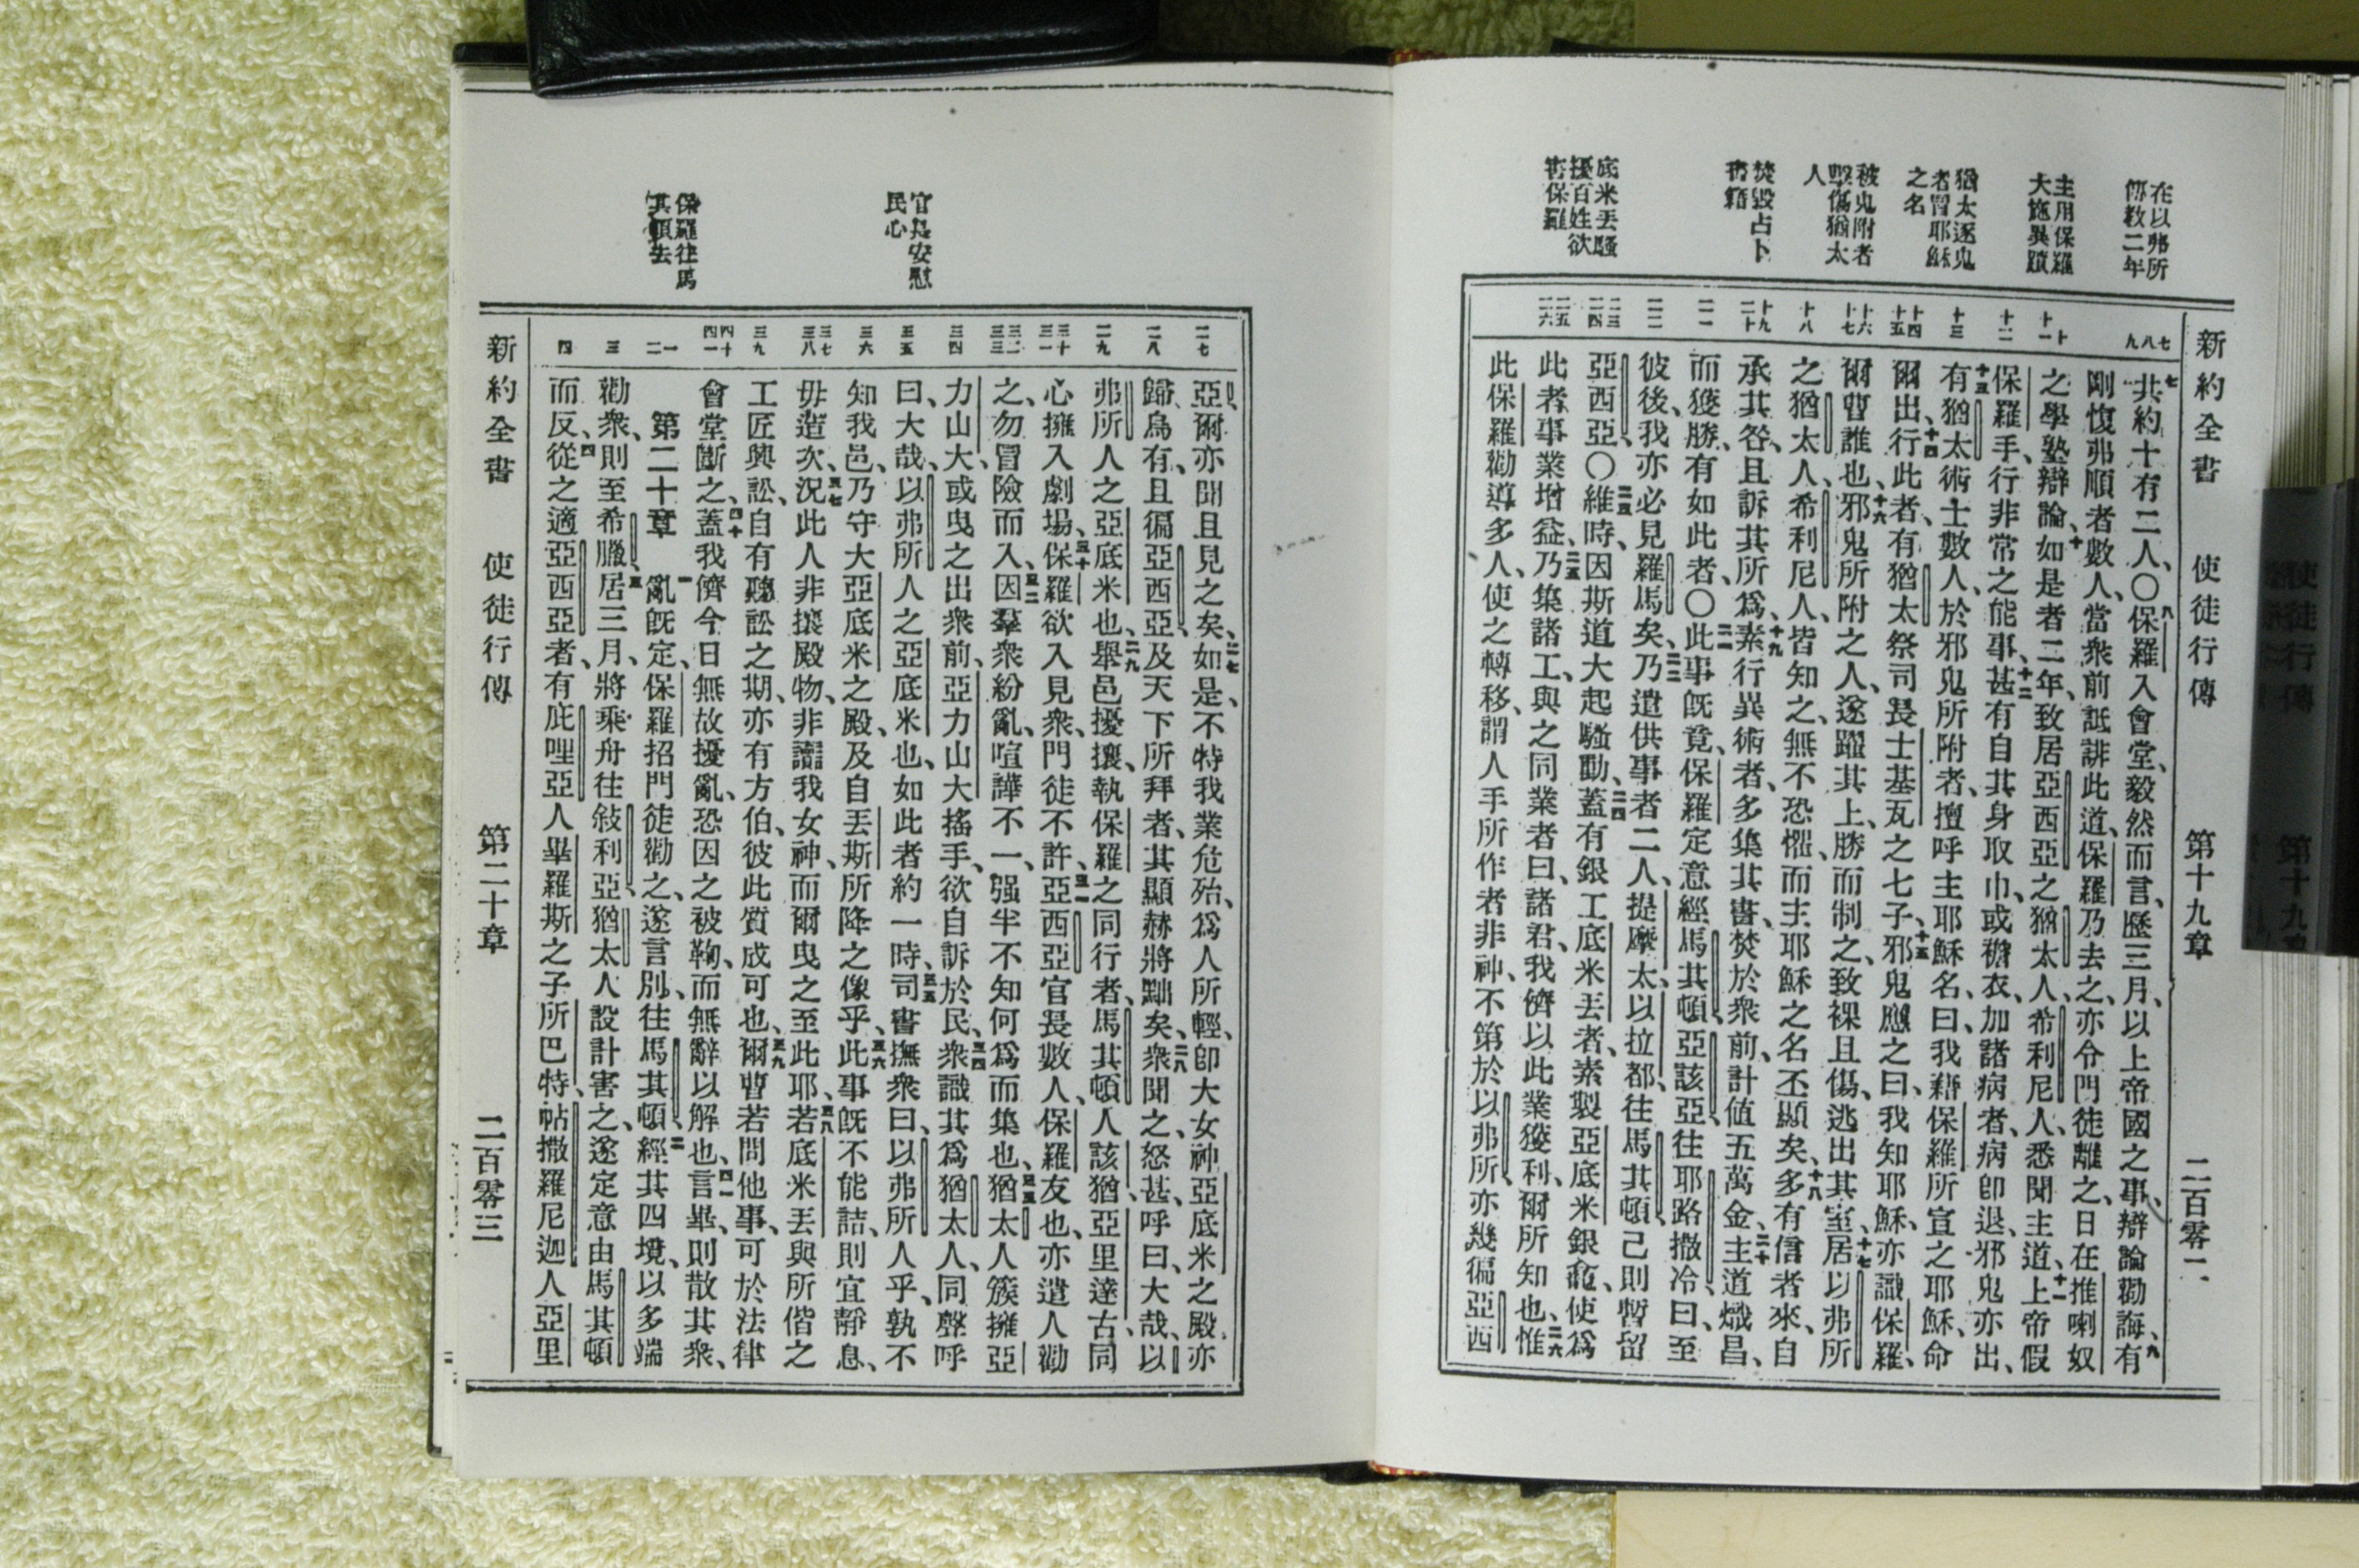 新約全書 使徒行傳 第十九章 二百零二
在以弗所
傳教二年
主用保羅
大施異蹟
猶太逐鬼
者冒耶穌
之名
被鬼附者
毀傷猶太
人
焚毀占卜
書籍
底米丟騷
擾百姓欲
害保羅
七八九
十十一
十二
十三
十四十五
十六十七
十八
十九二十
二一
二二
二三二四
二五二六
七共約十有二人、〇八保羅入會堂、毅然而言、歷三月、以上帝國之事、辯論勸誨、九有
剛愎弗順者數人、當衆前詆誹此道、保羅乃去之、亦令門徒離之、日在推喇奴
之學塾辯論、十如是者二年、致居亞西亞之猶太人、希利尼人、悉聞主道、十一上帝假
保羅手、行非常之能事、十二甚有自其身取巾、或襜衣、加諸病者、病卽退、邪鬼亦出、
十三有猶太術士數人、於邪鬼所附者、擅呼主耶穌名、曰、我藉保羅所宣之耶穌、命
爾出、十四行此者、有猶太祭司長士基瓦之七子、十五邪鬼應之曰、我知耶穌、亦識保羅、
爾曹誰也、十六邪鬼所附之人、遂躍其上、勝而制之、致裸且傷、逃出其室、十七居以弗所
之猶太人、希利尼人、皆知之、無不恐懼、而主耶穌之名丕顯矣、十八多有信者來、自
承其咎、且訴其所爲、十九素行異術者、多集其書、焚於衆前、計値五萬金、二十主道熾昌、
而獲勝、有如此者、〇二一此事旣竟、保羅定意經馬其頓、亞該亞、往耶路撒冷、曰、至
彼後、我亦必見羅馬矣、二二乃遣供事者二人、提摩太、以拉都、往馬其頓、己則暫留
亞西亞、〇二三維時、因斯道大起騷動、二四蓋有銀工底米丟者、素製亞底米銀龕、使爲
此者、事業增益、二五乃集諸工、與之同業者、曰、諸君、我儕以此業獲利、爾所知也、二六惟
此保羅勸導多人、使之轉移、謂人手所作者非神、不第於以弗所、亦幾徧亞西
官長安慰
民心
保羅往馬
其頓去
二七
二八
二九
三十三一
三二三三
三四
三五
三六
三七三八
三九
四十四一
一二
三
四
亞、爾亦聞且見之矣、二七如是、不特我業危殆、爲人所輕、卽大女神亞底米之殿、亦
歸烏有、且徧亞西亞、及天下所拜者、其顯赫將黜矣、二八衆聞之、怒甚、呼曰、大哉、以
弗所人之亞底米也、二九舉邑擾攘、執保羅之同行者、馬其頓人該猶、亞里達古、同
心擁入劇場、三十保羅欲入見衆、門徒不許、三一亞西亞官長數人、保羅友也、亦遣人勸
之、勿冒險而入、三二因羣衆紛亂、喧譁不一、强半不知何爲而集也、三三猶太人簇擁亞
力山大、或曳之出衆前、亞力山大搖手、欲自訴於民、三四衆識其爲猶太人、同聲呼
曰、大哉、以弗所人之亞底米也、如此者約一時、三五司書撫衆曰、以弗所人乎、孰不
知我邑、乃守大亞底米之殿、及自丟斯所降之像乎、三六此事旣不能詰、則宜靜息、
毋造次、三七況此人非攘殿物、非讟我女神、而爾曳之至此耶、三八若底米丟與所偕之
工匠興訟、自有聽訟之期、亦有方伯、彼此質成可也、三九爾曹若問他事、可於法律
會堂斷之、四十蓋我儕今日無故擾亂、恐因之被鞫、而無辭以解也、四一言畢、則散其衆、
第二十章 一亂旣定、保羅招門徒勸之、遂言別、往馬其頓、二經其四境、以多端
勸衆、則至希臘、三居三月、將乘舟往敍利亞、猶太人設計害之、遂定意由馬其頓
而反、四從之適亞西亞者、有庇哩亞人畢羅斯之子所巴特、帖撒羅尼迦人亞里
新約全書 使徒行傳 第二十章 二百零三